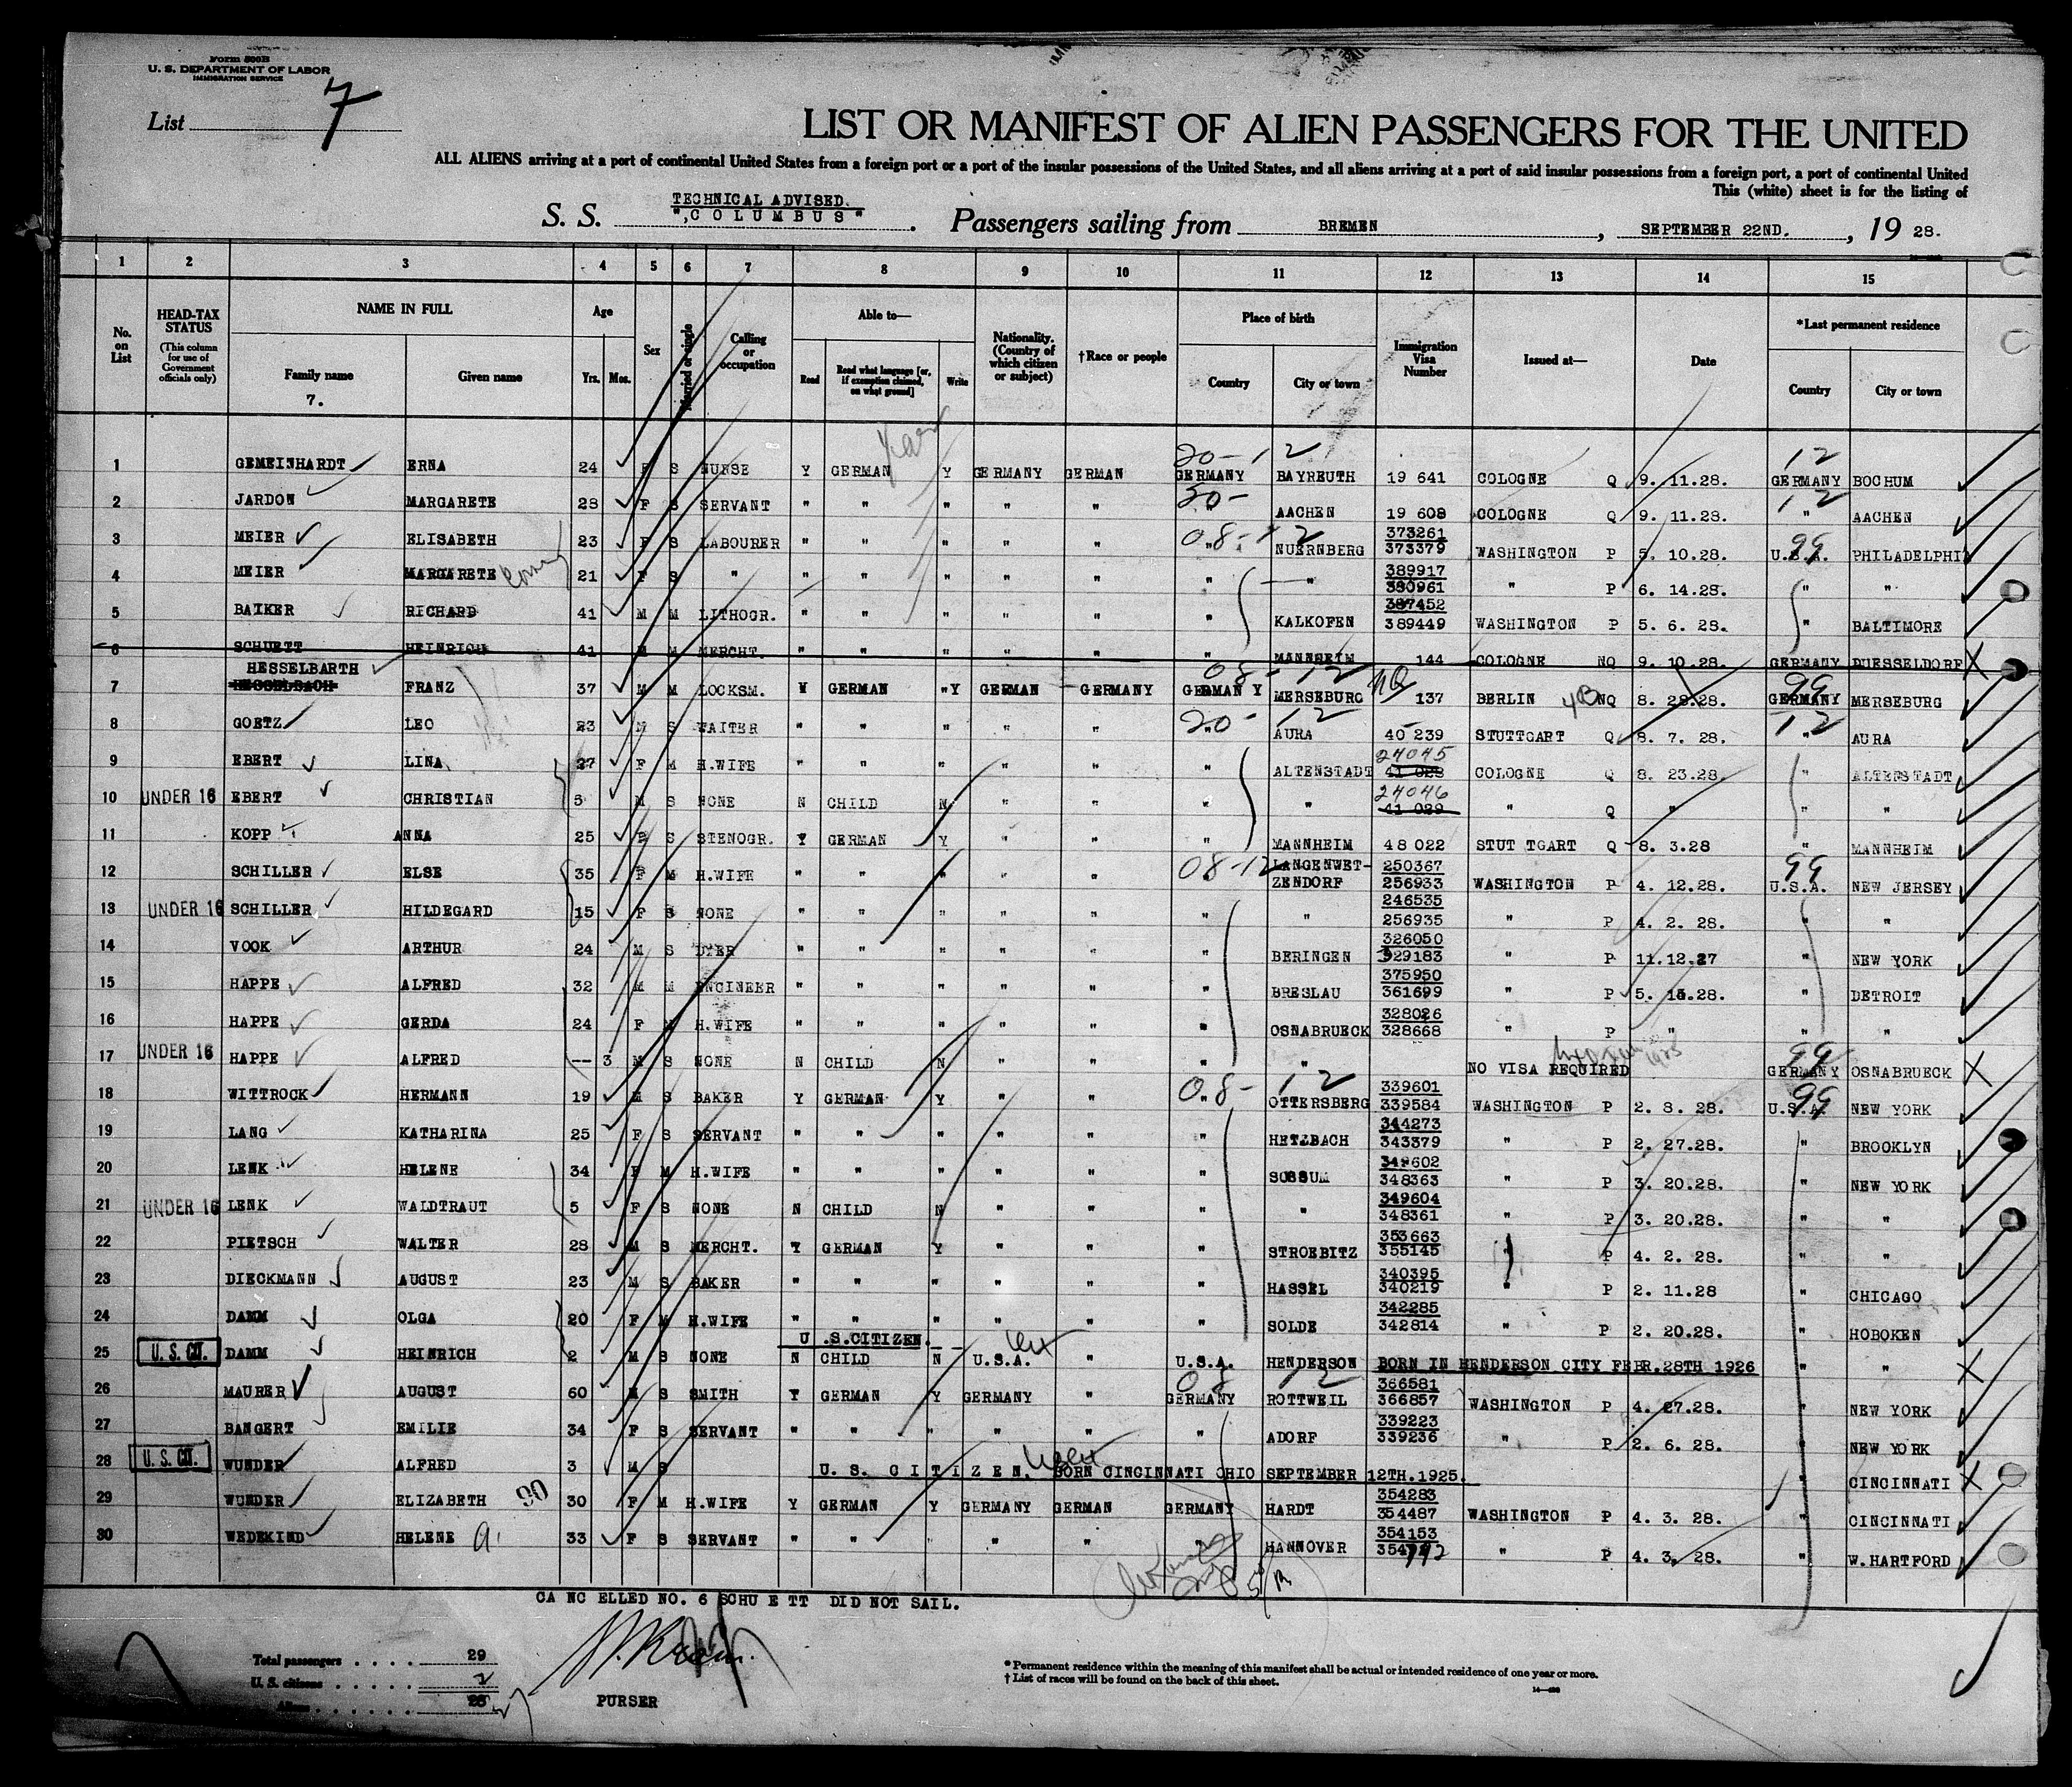 Form 500B
U. S. DEPARTMENT OF LABOR
IMMIGRATION SERVICE
List 7
LIST OR MANIFEST OF ALIEN PASSENGERS FOR THE UNITED
ALL ALIENS arriving at a port of continental United States from a foreign port or a port of the insular possessions of the United States, and all aliens arriving at a port of said insular possessions from a foreign port, a port of continental United
This (white) sheet is for the listing of
TECHNICAL ADVISED.
S. S. ",COLUMBUS" . Passengers sailing from BREMEN , SEPTEMBER 22ND. , 19 28.
1 2 3 4 5 6 7 8 9 10 11 12 13 14 15
No. on List HEAD-TAX STATUS (This column for use of Government officials only) NAME IN FULL Family name Given name Age Yrs. Mos. Sex Married or single Calling or occupation Able to— Read Read what language [or, if exemption claimed, on what ground] Write Nationality. (Country of which citizen or subject) †Race or people Place of birth Country City or town Immigration Visa Number Issued at— Date *Last permanent residence Country City or town
7.
20-12 12
1 GEMEINHARDT ERNA 24 F S NURSE Y GERMAN Y GERMANY GERMAN GERMANY BAYREUTH 19 641 COLOGNE Q 9. 11.28. GERMANY BOCHUM
30- 12
2 JARDON MARGARETE 28 F S SERVANT " " " " " " AACHEN 19 608 COLOGNE Q 9. 11.28. " AACHEN
08-12 373261 99
3 MEIER ELISABETH 23 F S LABOURER " " " " " " NUERNBERG 373379 WASHINGTON P 5. 10.28. U.S.A. PHILADELPHI
389917
4 MEIER MARGARETE 21 F S " " " " " " " " 380961 " P 6. 14.28. " "
387452
5 BAIKER RICHARD 41 M M LITHOGR. " " " " " " KALKOFEN 389449 WASHINGTON P 5. 6. 28. " BALTIMORE
6 SCHUETT HEINRICH 41 M M MERCHT. " " " " " " MANNHEIM 144 COLOGNE NQ 9. 10.28. GERMANY DUESSELDORF X
HESSELBARTH 08-12 NQ 99
7 HESSELBACH FRANZ 37 M M LOCKSM. Y GERMAN "Y GERMAN GERMANY GERMAN Y MERSEBURG 137 BERLIN 4B NQ 8. 28.28. GERMANY MERSEBURG
20-12 12
8 GOETZ LEO 23 M S WAITER " " " " " " AURA 40 239 STUTTGART Q 8. 7. 28. " AURA
24045
9 EBERT LINA 27 F M H.WIFE " " " " " " ALTENSTADT 41 028 COLOGNE Q 8. 23.28. " ALTENSTADT
24046
10 UNDER 16 EBERT CHRISTIAN 5 M S NONE N CHILD N " " " " 41 029 " Q " " "
11 KOPP ANNA 25 F S STENOGR. Y GERMAN Y " " " MANNHEIM 48 022 STUT TGART Q 8. 3.28 " MANNHEIM
08-12 LANGENWET- 250367 99
12 SCHILLER ELSE 35 F M H.WIFE " " " " " ZENDORF 256933 WASHINGTON P 4. 12.28. U.S.A. NEW JERSEY
246535
13 UNDER 16 SCHILLER HILDEGARD 15 F S NONE " " " " " " " 256935 " P 4. 2. 28. " "
326050
14 VOOK ARTHUR 24 M S DYER " " " " " " BERINGEN 329183 " P 11.12.27 " NEW YORK
375950
15 HAPPE ALFRED 32 M M ENGINEER " " " " " " BRESLAU 361699 " P 5. 15.28. " DETROIT
328026
16 HAPPE GERDA 24 F M H.WIFE " " " " " " OSNABRUECK 328668 " P " " "
99
17 UNDER 16 HAPPE ALFRED -- 3 M S NONE N CHILD N " " " " NO VISA REQUIRED GERMANY OSNABRUECK X
08-12 339601 99
18 WITTROCK HERMANN 19 M S BAKER Y GERMAN Y " " " OTTERSBERG 339584 WASHINGTON P 2. 8. 28. U.S.A. NEW YORK
344273
19 LANG KATHARINA 25 F S SERVANT " " " " " " HETZBACH 343379 " P 2. 27.28. " BROOKLYN
349602
20 LENK HELENE 34 F M H.WIFE " " " " " " SOSSUM 348363 " P 3. 20.28. " NEW YORK
349604
21 UNDER 16 LENK WALDTRAUT 5 F S NONE N CHILD N " " " " 348361 " P 3. 20.28. " "
353663
22 PIETSCH WALTER 28 M S MERCHT. Y GERMAN Y " " " STROEBITZ 355145 " P 4. 2. 28. " "
340395
23 DIECKMANN AUGUST 23 M S BAKER " " " " " " HASSEL 340219 " P 2. 11.28 " CHICAGO
342285
24 DAMM OLGA 20 F M H.WIFE " " " " " " SOLDE 342814 " P 2. 20.28. " HOBOKEN
U .S.CITIZEN.
25 U. S. CIT. DAMM HEINRICH 2 M S NONE N CHILD N U.S.A. " U.S.A. HENDERSON BORN IN HENDERSON CITY FEBR.28TH 1926 " " X
08 12 366581
26 MAURER AUGUST 60 M S SMITH Y GERMAN Y GERMANY " GERMANY ROTTWEIL 366857 WASHINGTON P 4. 27.28. " NEW YORK
339223
27 BANGERT EMILIE 34 F S SERVANT " " " " " " ADORF 339236 " P 2. 6. 28. " NEW YORK
28 U. S. CIT. WUNDER ALFRED 3 M S U. S. C I T I Z E N. BORN CINCINNATI OHIO SEPTEMBER 12TH.1925. " CINCINNATI X
354283
29 WUNDER ELIZABETH 90 30 F M H.WIFE Y GERMAN Y GERMANY GERMAN GERMANY HARDT 354487 WASHINGTON P 4. 3. 28. " CINCINNATI
354153
30 WEDEKIND HELENE 33 F S SERVANT " " " " " " HANNOVER " P 4. 3. 28. " W.HARTFORD
CA NC ELLED NO. 6 SCHU E TT DID NOT SAIL.
Total passengers . . . . 29
U. S. citizens . . . . . 2
Aliens . . . . . . 27
PURSER
*Permanent residence within the meaning of this manifest shall be actual or intended residence of one year or more.
† List of races will be found on the back of this sheet.